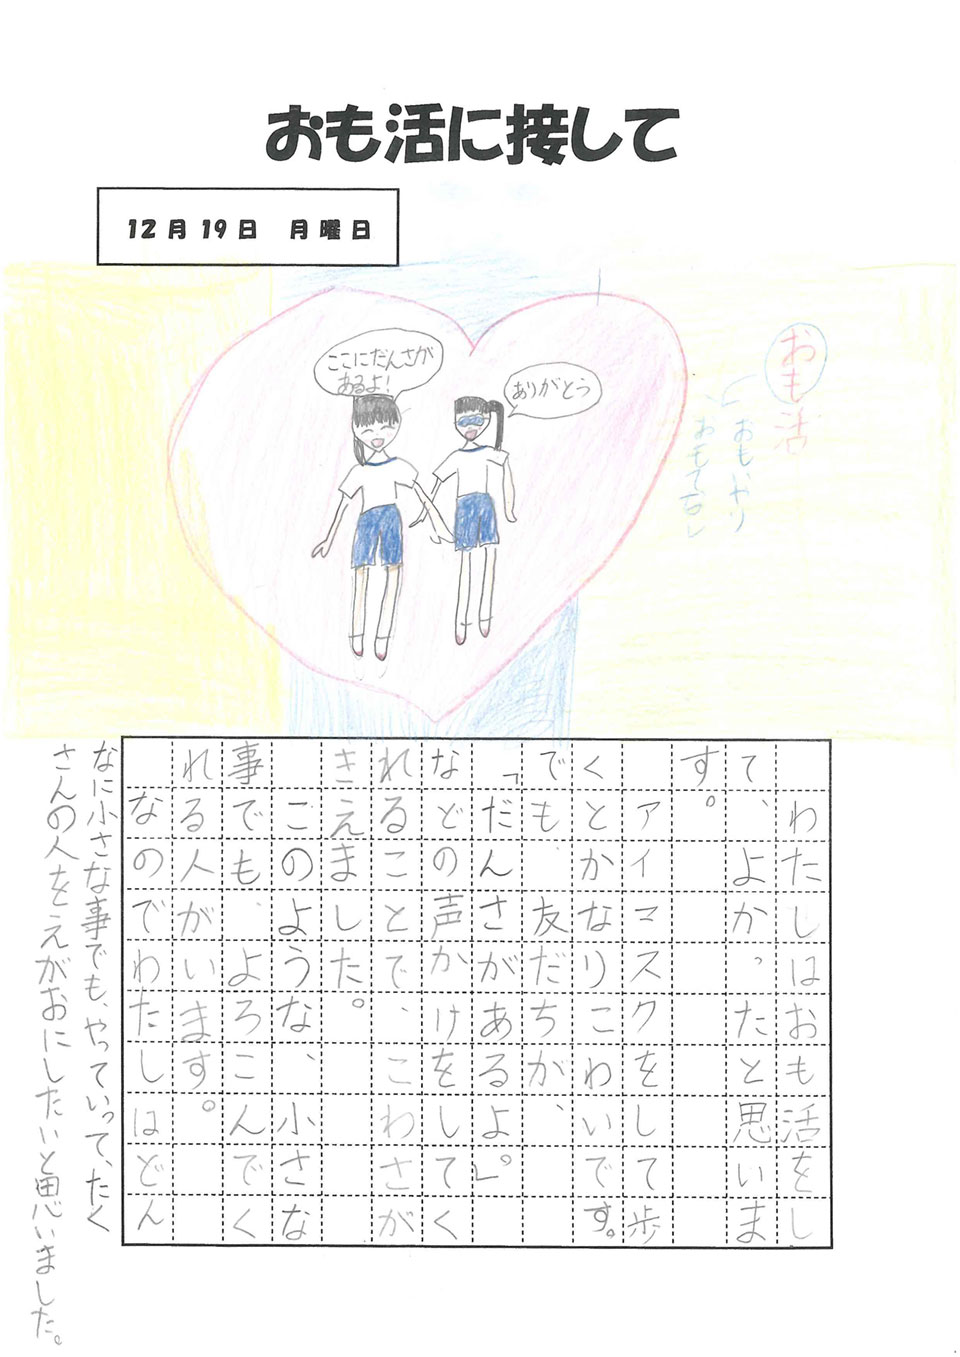 おも活に接して
12月19日　月曜日
ここにだんさが
あるよ！
ありがとう
おも活
おもいやり
おもてなし
わたしはおも活をし
て、よかったと思いま
す。
アイマスクをして歩
くとかなりこわいです。
でも、友だちが、
「だんさがあるよ」。
などの声かけをしてく
れることで、こわさが
きえました。
このような、小さな
事でも、よろこんでく
れる人がいます。
なのでわたしはどん
なに小さな事でも、やっていって、たく
さんの人をえがおにしたいと思いました。